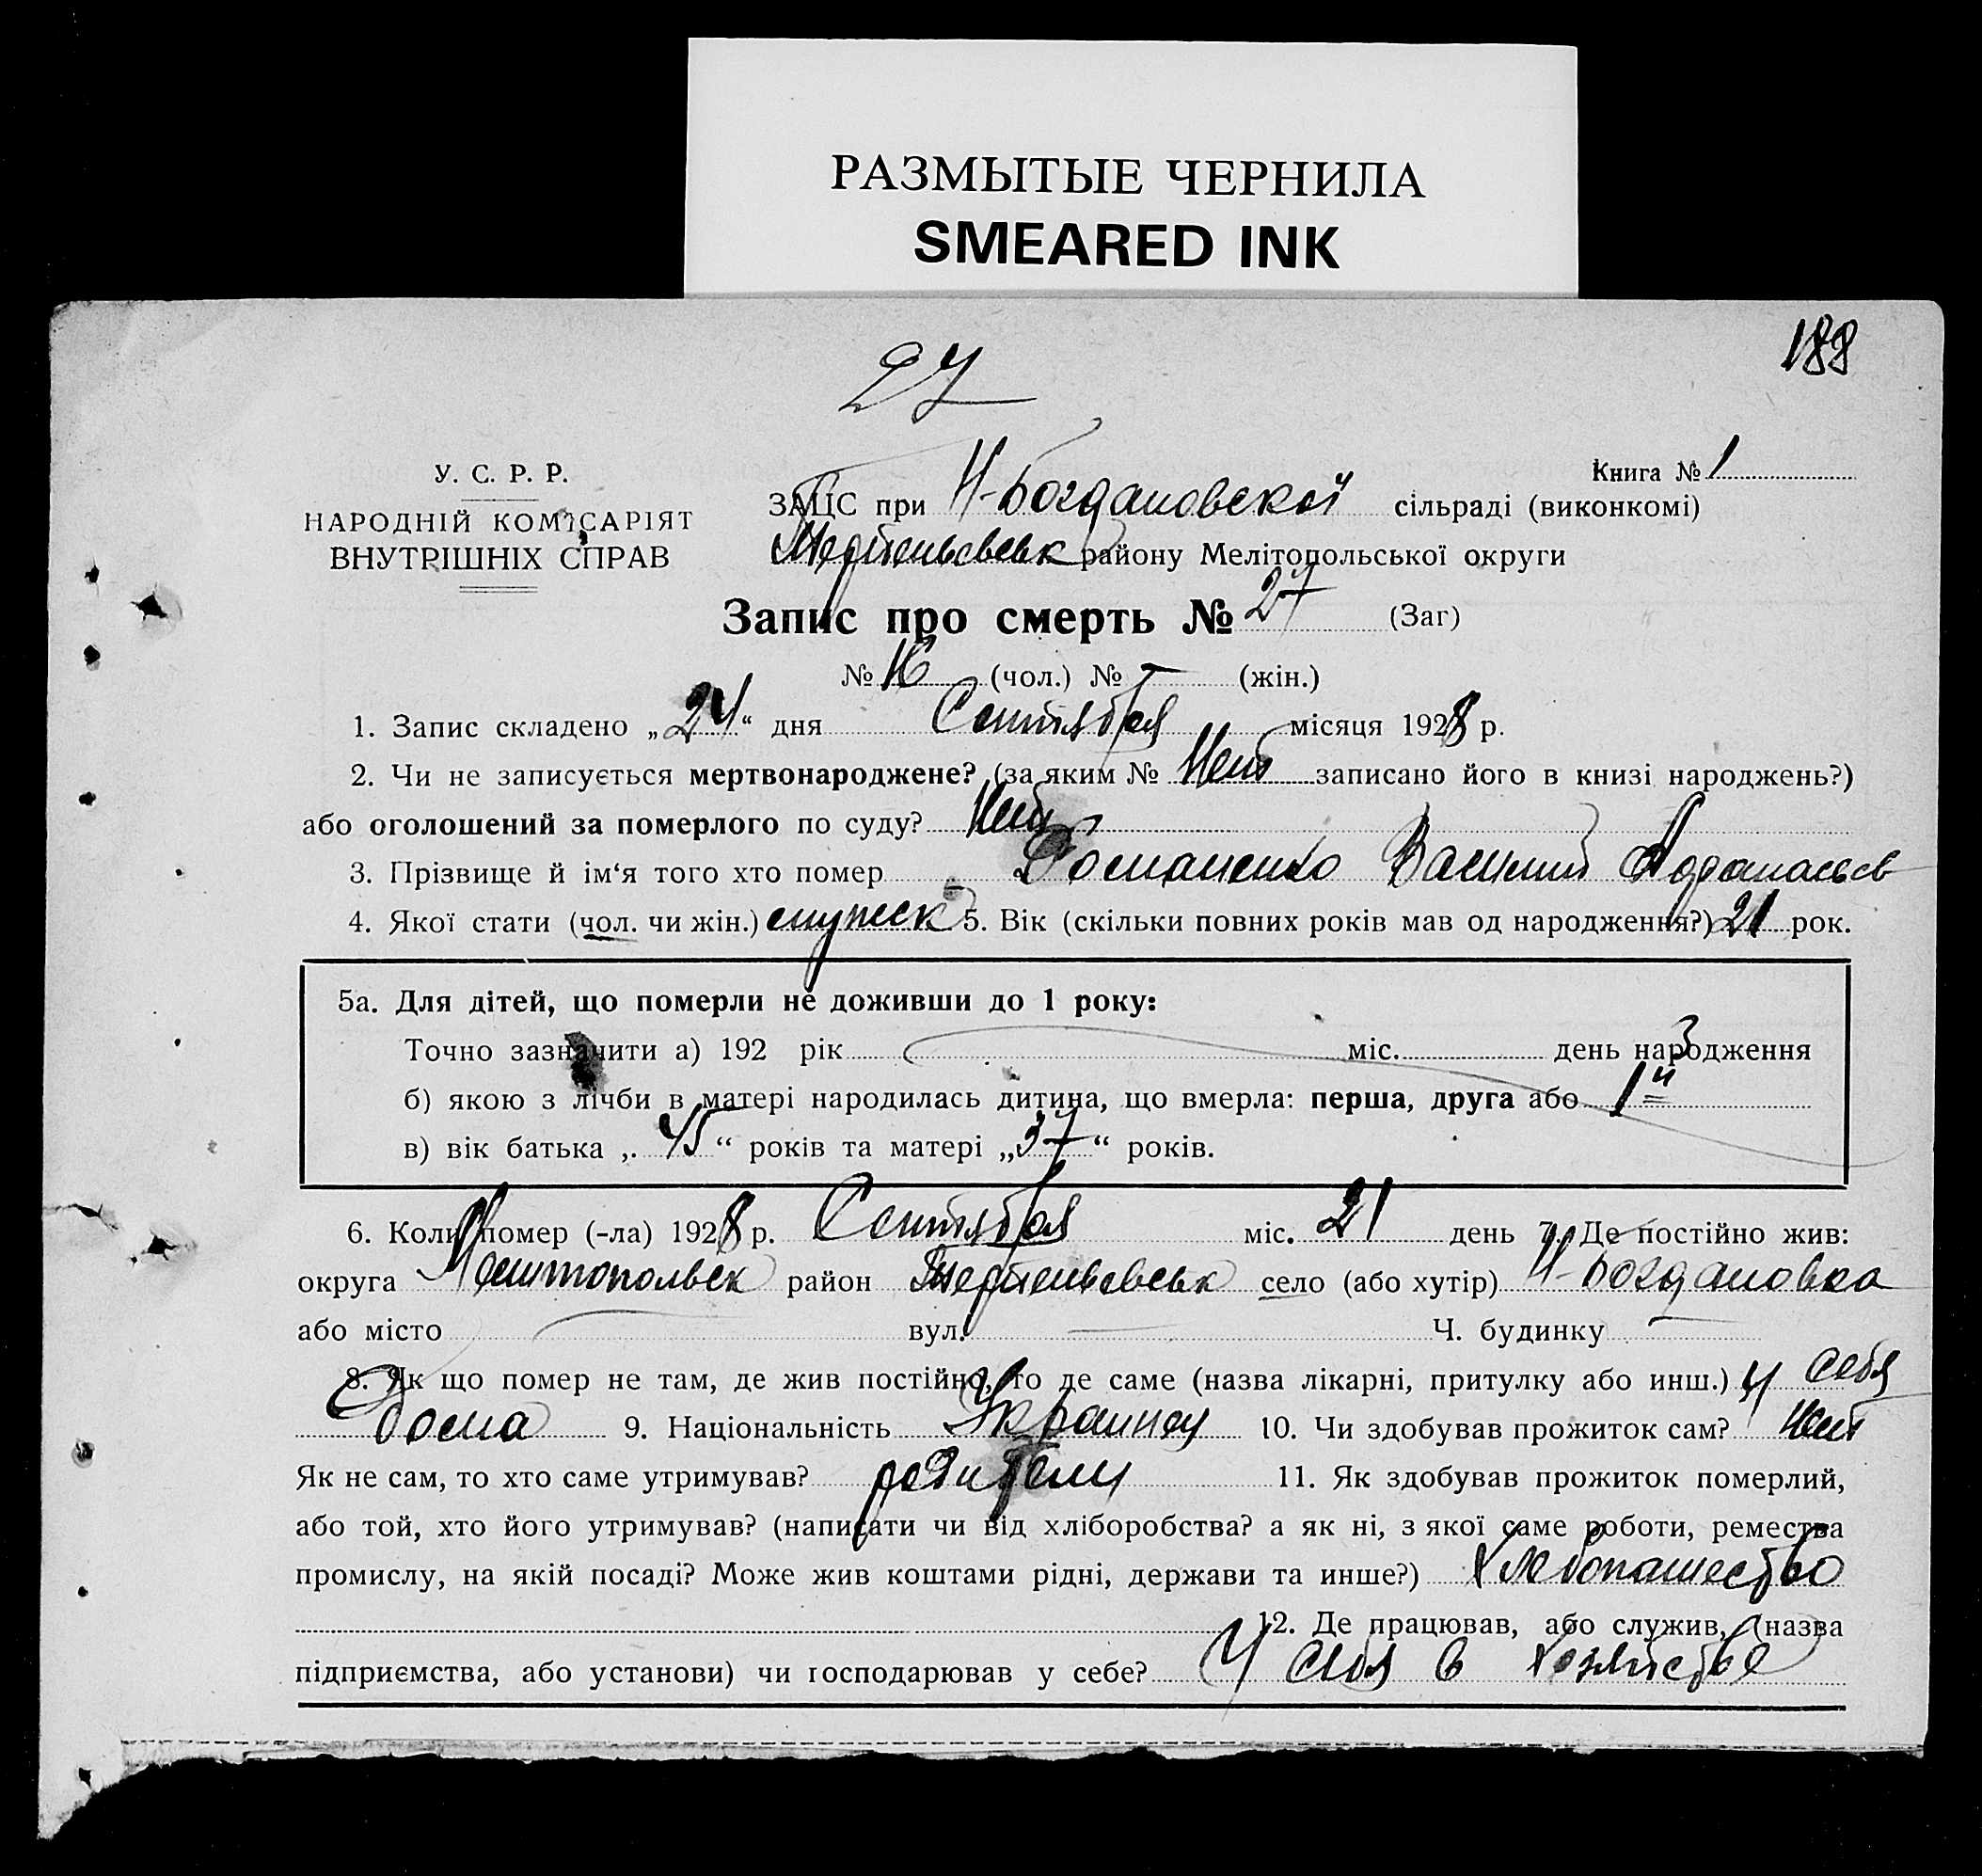 РАЗМЫТЫЕ ЧЕРНИЛА
SMEARED INK
188
27
У. С. Р. Р.
НАРОДНІЙ КОМІСАРІЯТ
ВНУТРІШНІХ СПРАВ
Книга № 1
ЗАЦС при Н-Богдановской сільраді (виконкомі)
району Мелітопольської округи
Запис про смерть № 27 (Заг)
№ 16 (чол.) № — (жін.)
1. Запис складено „24“ дня Сентября місяця 1928 р.
2. Чи не записується мертвонароджене? (за яким № Нет записано його в книзі народжень?)
або оголошений за померлого по суду? Нет
3. Прізвище й ім‘я того хто помер Василий
4. Якої стати (чол. чи жін.) мужск 5. Вік (скільки повних років мав од народження?) 21 рок.
5а. Для дітей, що померли не доживши до 1 року:
Точно зазначити а) 192 рік міс. день народження
б) якою з лічби в матері народилась дитина, що вмерла: перша, друга або 1й
в) вік батька „45“ років та матері „37“ років.
6. Коли помер (-ла) 1928 р. Сентября міс. 21 день 7. Де постійно жив:
округа район село (або хутір) Н-Богдановка
або місто — вул. — Ч. будинку —
8. Як що помер не там, де жив постійно, то де саме (назва лікарні, притулку або инш.) У себя
дома 9. Національність 10. Чи здобував прожиток сам? Нет
Як не сам, то хто саме утримував? родители 11. Як здобував прожиток померлий,
або той, хто його утримував? (написати чи від хліборобства? а як ні, з якої саме роботи, ремества
промислу, на якій посаді? Може жив коштами рідні, держави та инше?) Хлебопашество
12. Де працював, або служив, (назва
підприємства, або установи) чи господарював у себе? У себя в хозяйстве